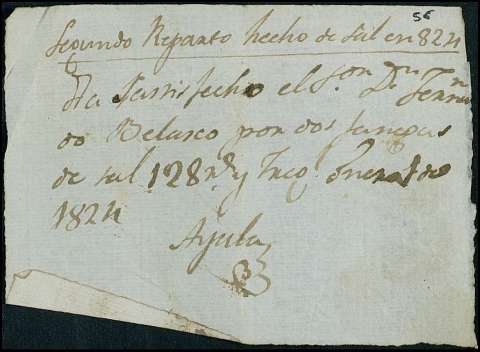 56
Segundo Reparto hecho de sal en 824
Ha Satisfecho el Sor. Dn. Fernan
do Belasco por dos fanegas
de sal 128 rs. y Enero de
1824
Ayala